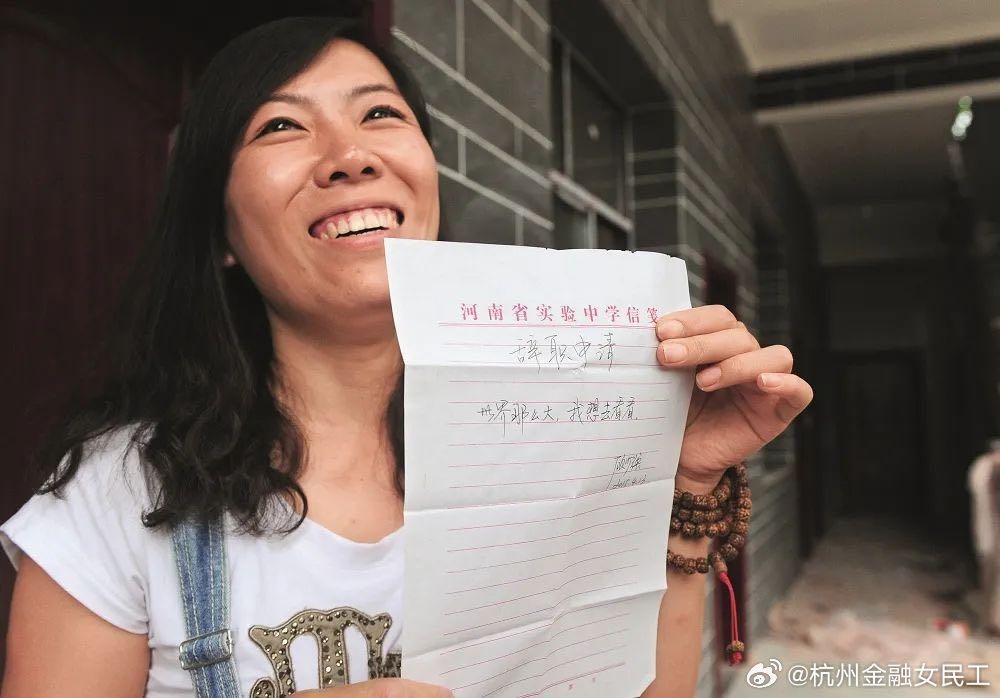 河南省实验中学信笺
辞职申请
世界那么大，我想去看看
@杭州金融女民工